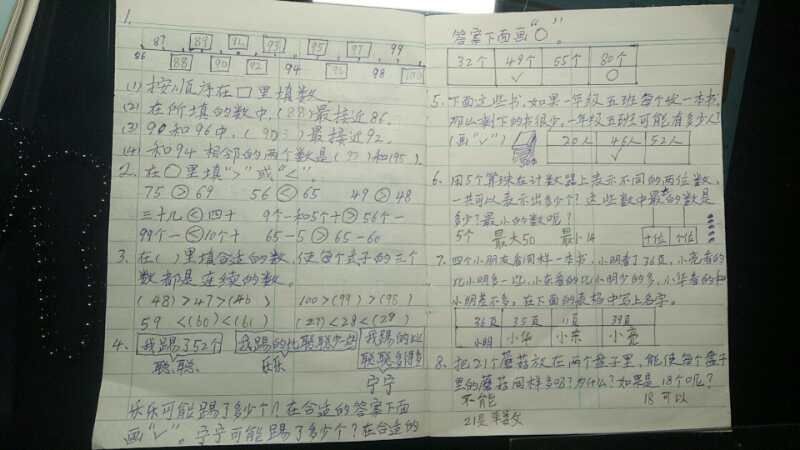 1.
87 89 91 93 95 97 99
86 88 90 92 94 96 98 100
(1) 按顺序在□里填数
(2) 在所填的数中,(88)最接近86.
(3) 90和96中,(90)最接近92.
(4) 和94相邻的两个数是(93)和(95).
2. 在○里填">"或"<"
75 > 69 56 < 65 49 > 48
三十几 < 四十 9个一和5个十 > 56个一
99个一 < 10个十 65-5 > 65-60
3. 在( )里填合适的数,使每个式子的三个
数都是连续的数.
(48)>47>(46) 100>(99)>(98)
59<(60)<(61) (27)<28<(29)
4. 我踢了52个 我踢的比聪聪少一些 我踢的比
聪聪多得多
聪聪 乐乐 宁宁
乐乐可能踢了多少个?在合适的答案下面
画"✓"。宁宁可能踢了多少个?在合适的
答案下面画"○"。
32个 49个 55个 80个
✓ ○
5. 下面这些书,如果一年级五班每个徒一本书,
那么剩下的书很少,一年级五班可能有多少人?
(画"✓") 50本 20人 46人 52人
✓
6. 用5个算珠在计数器上表示不同的两位数,
一共可以表示出多少个?这些数中最大的数是
多少?最小的数呢?
5个 最大50 最小14 十位 个位
7. 四个小朋友看同样一本书,小明看了36页,小亮看的
比小明多一些,小东看的比小明少的多,小华看的和
小明差不多。在下面的表格中写上名字。
36页 35页 11页 39页
小明 小华 小东 小亮
8. 把21个蘑菇放在两个盘子里,能使每个盘子
里的蘑菇同样多吗?为什么?如果是18个呢?
不能 18可以
21是单数